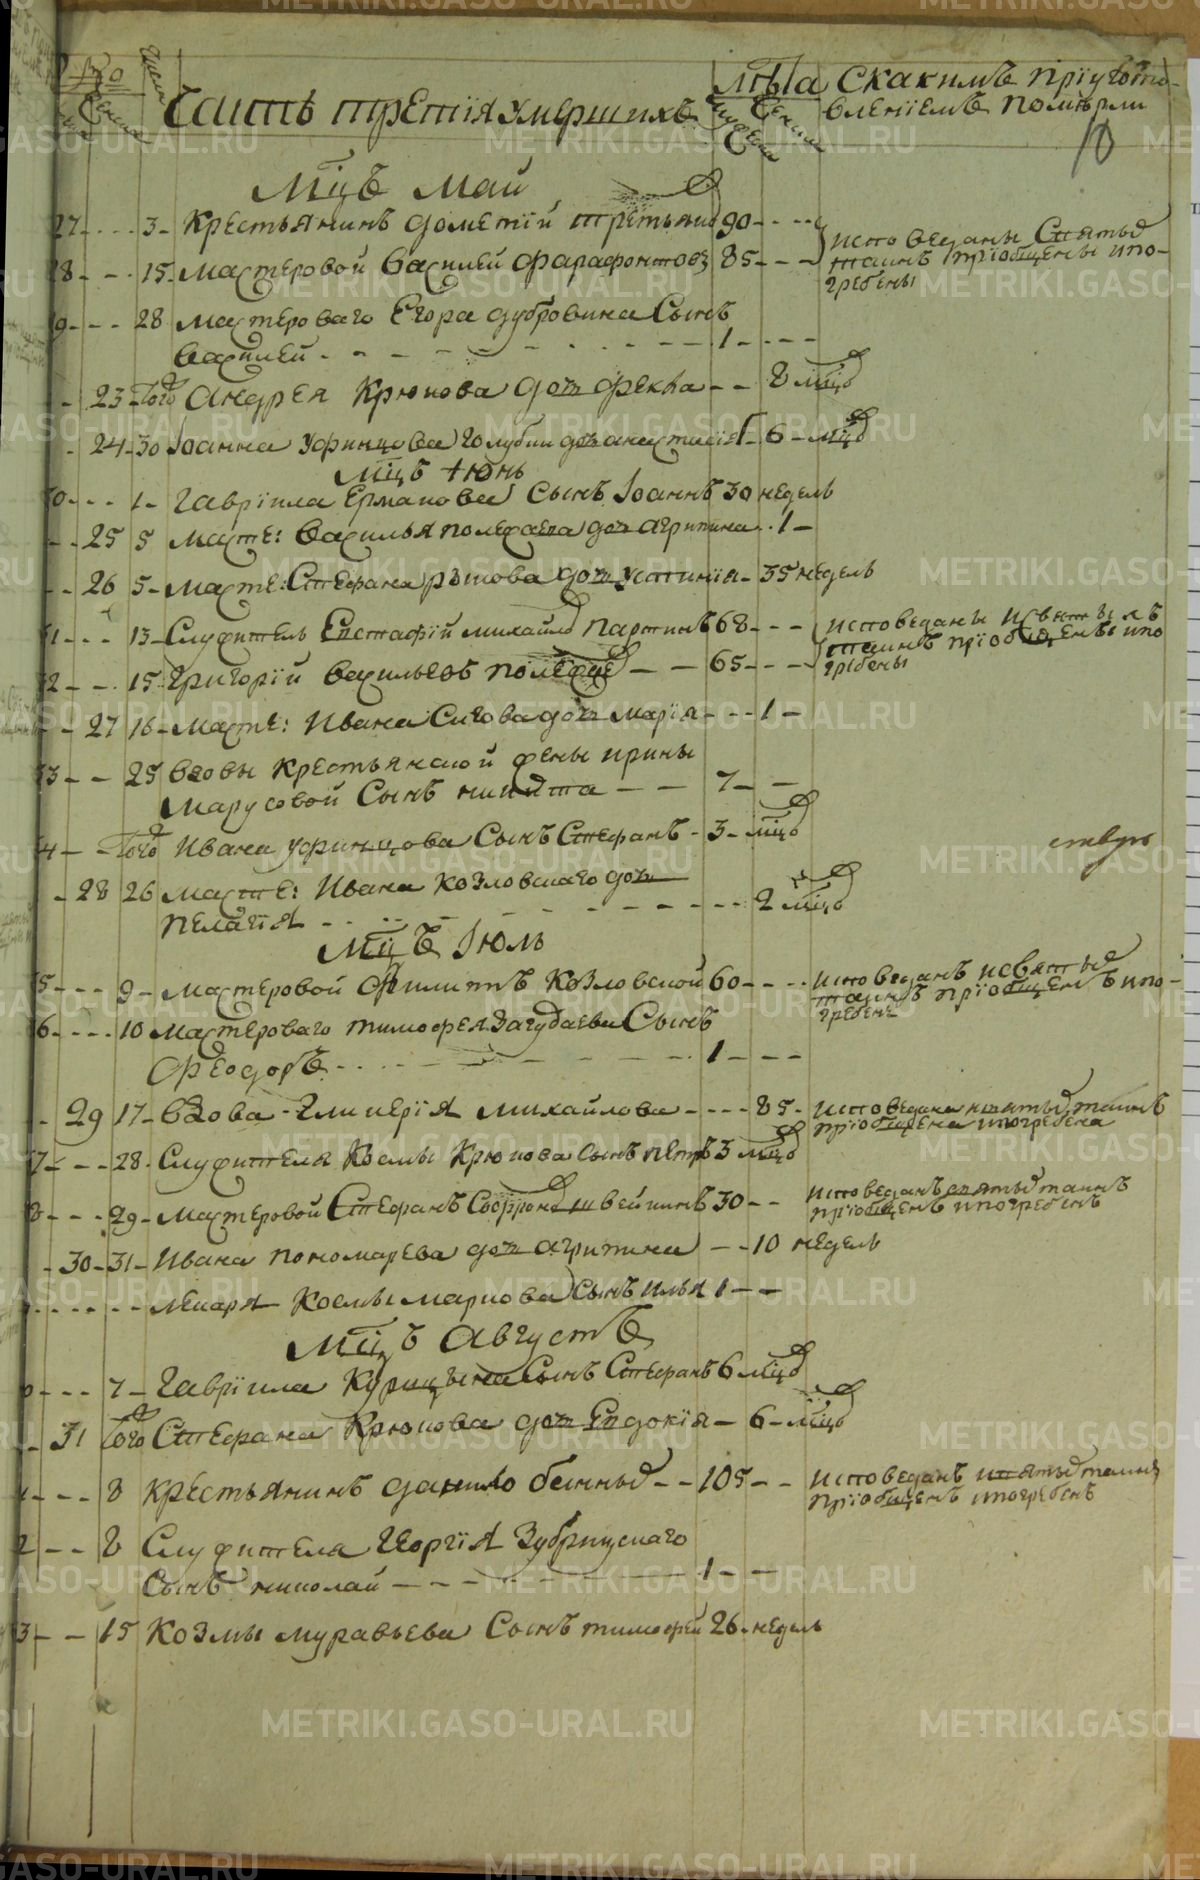 Часть третїя умершихъ
лѣта
скакимъ прїуготовленїемъ померли
10
Мцъ май
27 3 крестьянинъ дометїй третьяков 90
28 15 мастеровой василей фарафонтовъ 85
исповеданы святых
таинъ прїобщены и по-
гребены
9 28 мастероваго Егора дубровина Сынъ
василей 1
23 того андрея крюкова дочь фекла 8 мцов
24 30 Iоанна уфинцова голубин дочь анастасїя 6 мцов
Мцъ Iюнь
1 гаврїила Ермакова сынъ Iоаннъ 30 недель
25 5 масте: василья полефаева дочь агрипина 1
26 5 масте: Стефана рытова дочь устинїя 35 недель
13 Служитель Евстафїй михайлов партинъ 68
исповеданы и святыхъ
таинъ прїобщены и по
гребены
15 григорїй васильевъ 65
27 16 масте: ивана Сигова дочь марїя 1
25 вдовы крестьянской жены ирины
марусовой Сынъ никита 7
того ивана уфинцова Сынъ Стефанъ 3 мцов
28 26 масте: ивана козловскаго дочь
пелагїя 2 мцов
Мцъ Iюль
9 мастеровой Филиппъ козловской 60
исповеданъ и святых
таинъ прїобщенъ и по-
гребенъ
10 мастероваго тимофея загудаева Сынъ
Феодоръ 1
29 17 вдова гликерїя михайлова 85
исповедана и святых таинъ
прїобщена и погребена
28 Служителя козмы крюкова сынъ петръ 3 мцов
29 мастеровой Стефанъ Софронов швейкинъ 30
исповеданъ святых таинъ
прїобщенъ и погребенъ
30 31 ивана пономарева дочь агрипина 10 недель
лекаря козмы маркова сынъ илья 1
Мцъ августъ
7 гаврїила курицына Сынъ Стефанъ 6 мцов
31 того Стефана крюкова дочь Евдокїя 6 мцов
8 крестьянинъ данило бенных 105
исповеданъ и святых таинъ
прїобщенъ и погребенъ
8 Служителя георгїя зубрицкаго
сынъ николай 1
15 козмы муравьева Сынъ тимофей 26 недель
METRIKI.GASO-URAL.RU